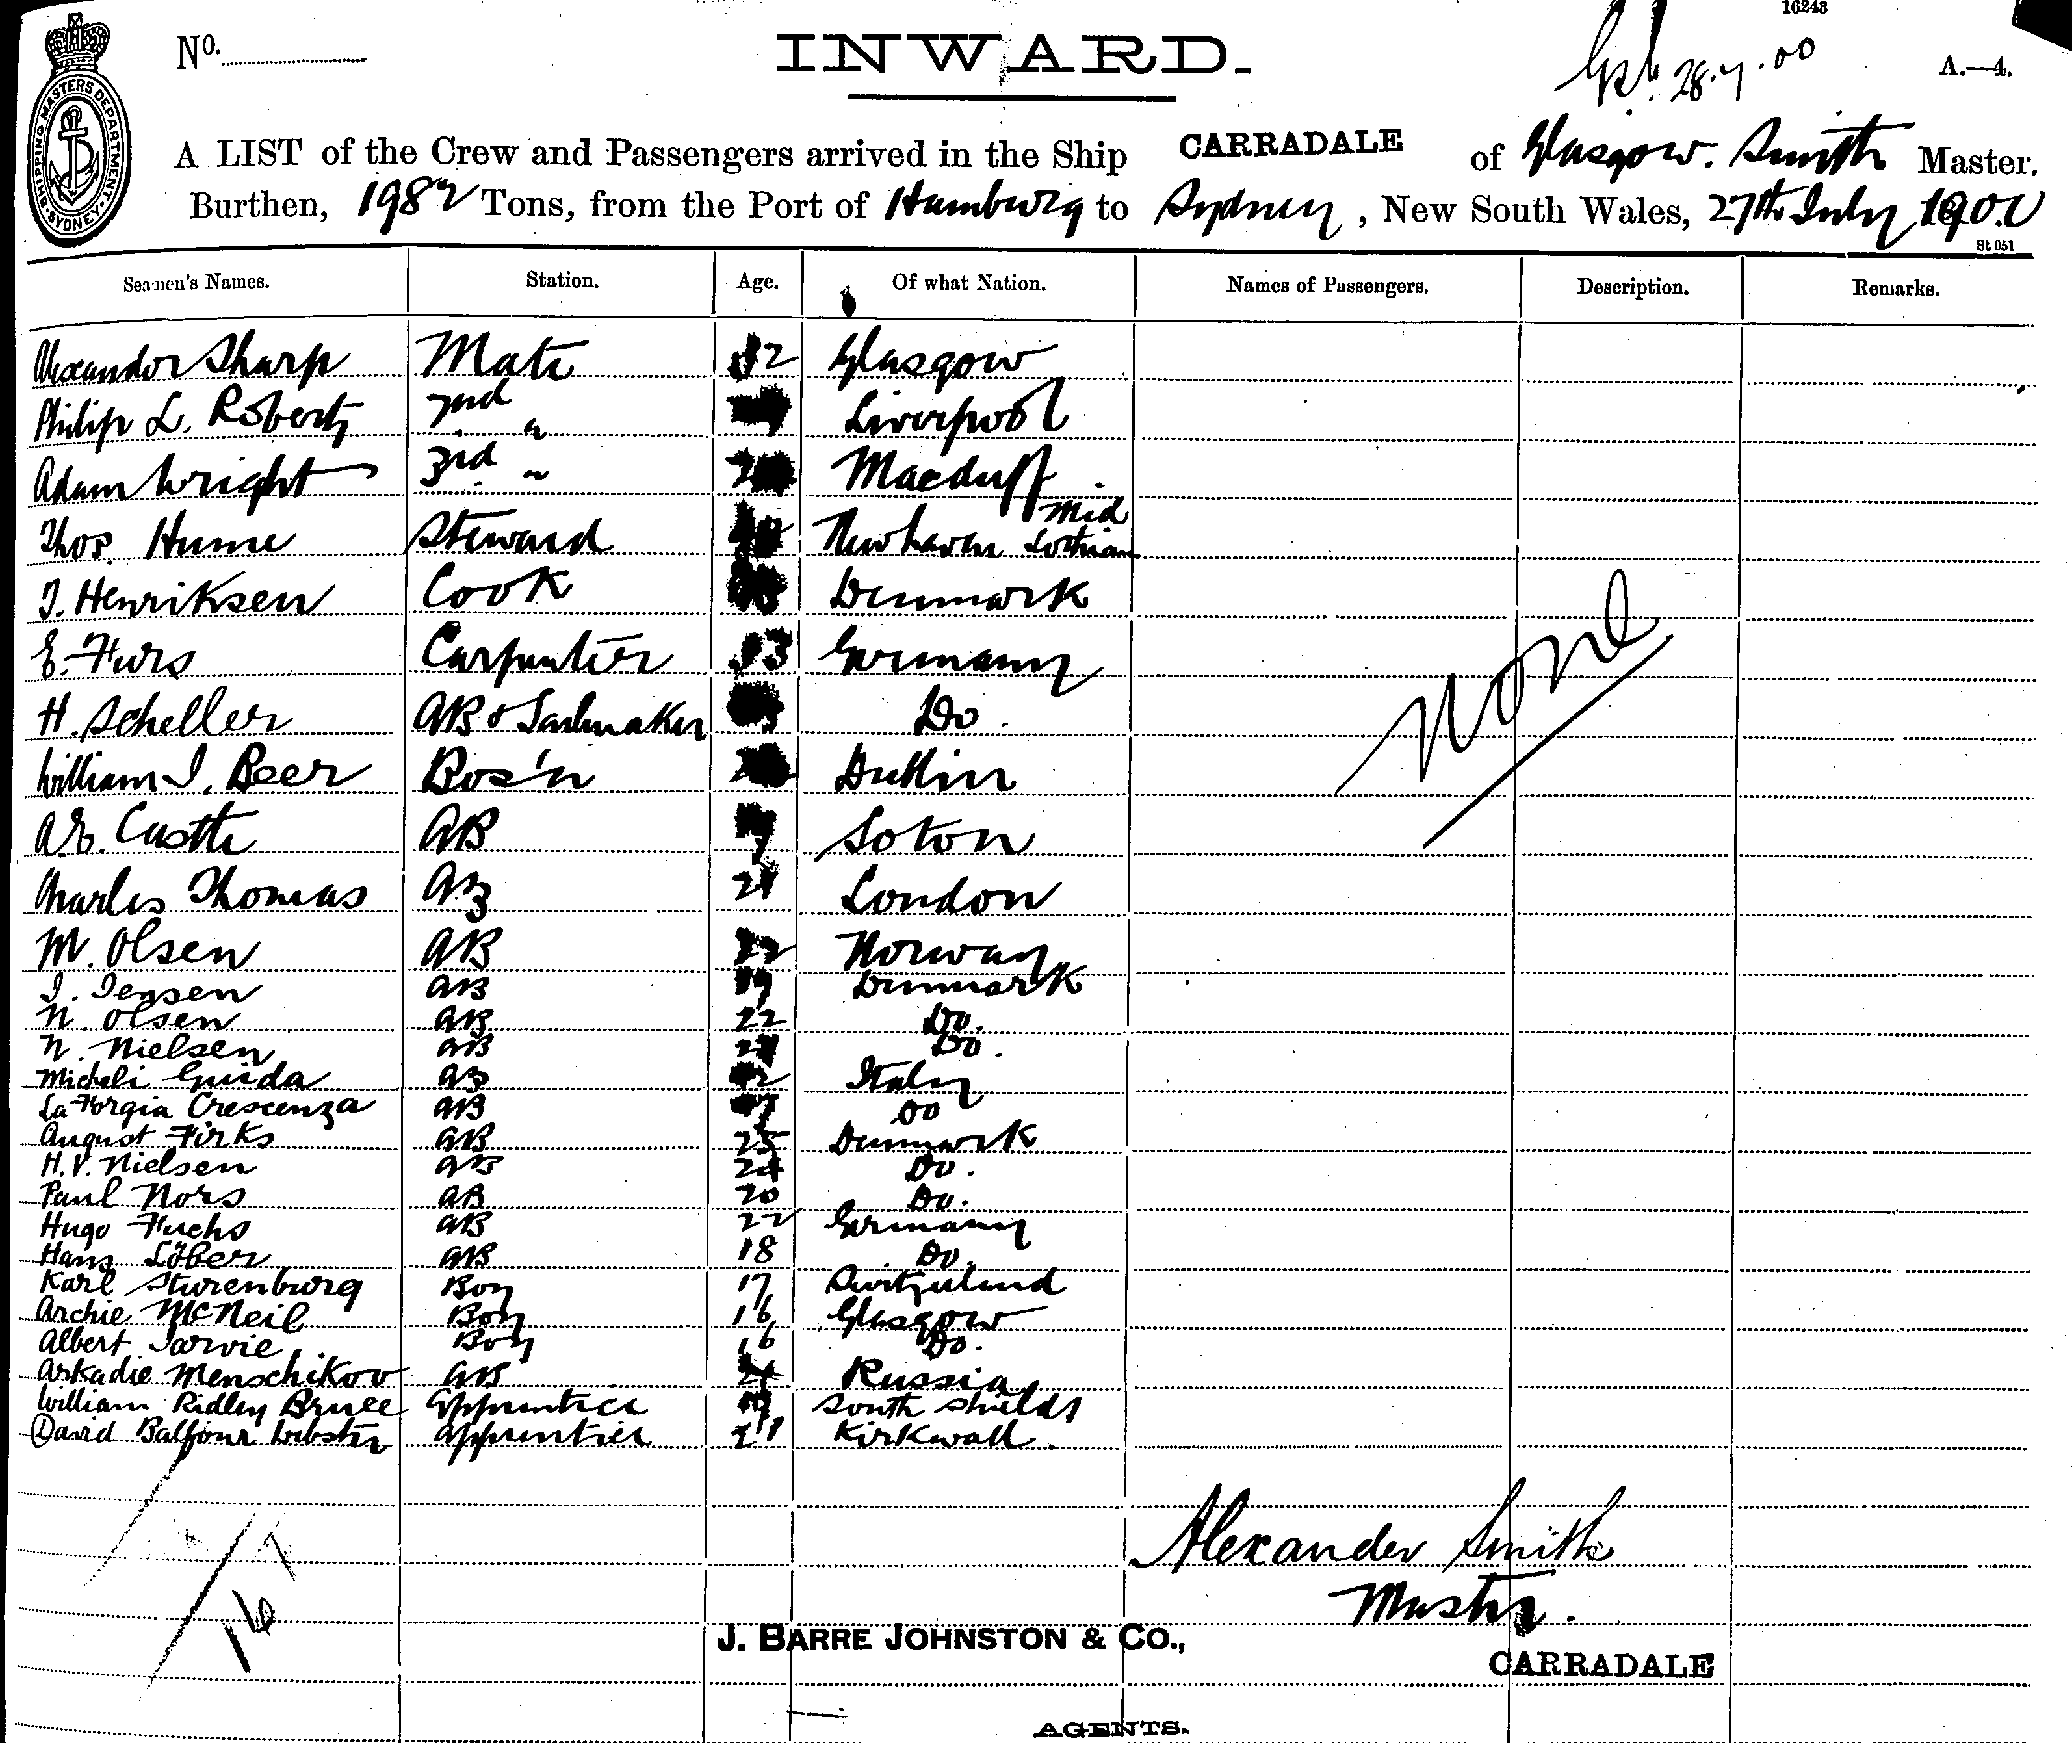 16243
No.
INWARD.
28.7.00
A.—4.
SHIPPING MASTERS DEPARTMENT SYDNEY
A LIST of the Crew and Passengers arrived in the Ship CARRADALE of Glasgow. Smith Master.
Burthen, 1982 Tons, from the Port of Hamburg to Sydney, New South Wales, 27th July 1900
St 051
Seamen's Names. Station. Age. Of what Nation. Names of Passengers. Description. Remarks.
Alexander Sharp Mate 32 Glasgow
Philip L. Roberts 2nd " Liverpool
Adam Wright 3rd " Macduff
Thos. Hume Steward Newhaven Mid Lothian
J. Henriksen Cook Denmark
E. Furs Carpenter 33 Germany
H. Scheller AB & Sailmaker Do.
William J. Beer Bos'n Dublin
A.E. Castle AB Soton
Charles Thomas AB 21 London
M. Olsen AB 22 Norway
J. Jensen AB 19 Denmark
N. Olsen AB 22 Do.
N. Nielsen AB Do.
Micheli Guida AB Italy
La Forgia Crescenza AB Do
August Firks AB 25 Denmark
H.V. Nielsen AB 24 Do.
Paul Nors AB 20 Do.
Hugo Fuchs AB 22 Germany
Hans Löber AB 18 Do.
Karl Sturenburg Boy 17 Switzerland
Archie McNeil Boy 16 Glasgow
Albert Jarvie Boy 16 Do.
Arkadie Menschikov AB 21 Russia
William Ridley Bruce Apprentice 19 South Shields
David Balfour Webster Apprentice 21 Kirkwall.
None
Alexander Smith
Master.
16
J. BARRE JOHNSTON & CO.,
CARRADALE
AGENTS.